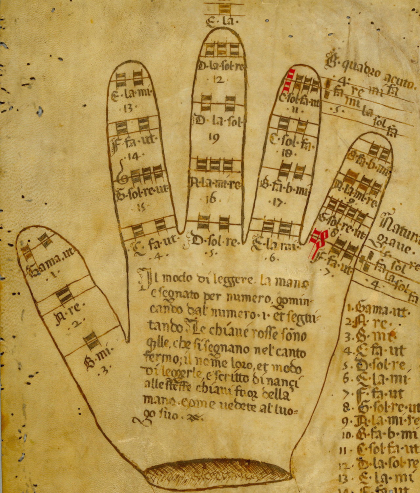 E. la.
D. la. sol. re.
12.
E. la. mi.
13.
C. sol. fa. ut
11.
♮ quadro acuto.
4.
fa re mi fa
5.
mi la sol
fa
F. fa. ut.
14.
D. la. sol.
19
C. sol. fa.
18.
B. fa. ♮. mi
G. sol. re. ut
15.
A. la. mi. re
16.
B. fa. ♮. mi
17.
A. la. mi. re
G. sol. re. ut
C. fa. ut.
4.
D. sol. re.
5.
E. la. mi.
6.
F. fa. ut.
7.
Natura
grave.
fa sol
fa sol
4.
Gama. ut.
1.
A. re.
2.
B. mi.
3.
Il modo di leggere la mano
e segnato per numero, comin
cando dal numero. 1. et segui
tando. Le chiave rosse sono
q̄lle, che si segnano nel canto
fermo; il nome loro, et modo
di leggerle, e scritto dinanci
alle stesse chiavi fuor della
mano. come vedete al luo-
go suo.
1. Gama. ut
2. A. re.
3. B. mi
4. C. fa. ut
5. D. sol. re
6. E. la. mi
7. F. fa. ut
8. G. sol. re. ut
9. A. la. mi. re
10. B. fa. ♮. mi
11. C. sol. fa. ut
12. D. la. sol. re
13. E. la. mi
14. F. fa. ut